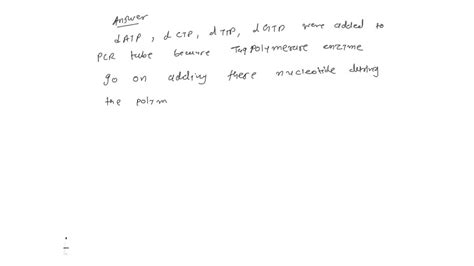 Answer
dATP, dCTP, dTTP, dGTP were added to
PCR tube because Taq polymerase enzyme
go on adding these nucleotide during
the polym